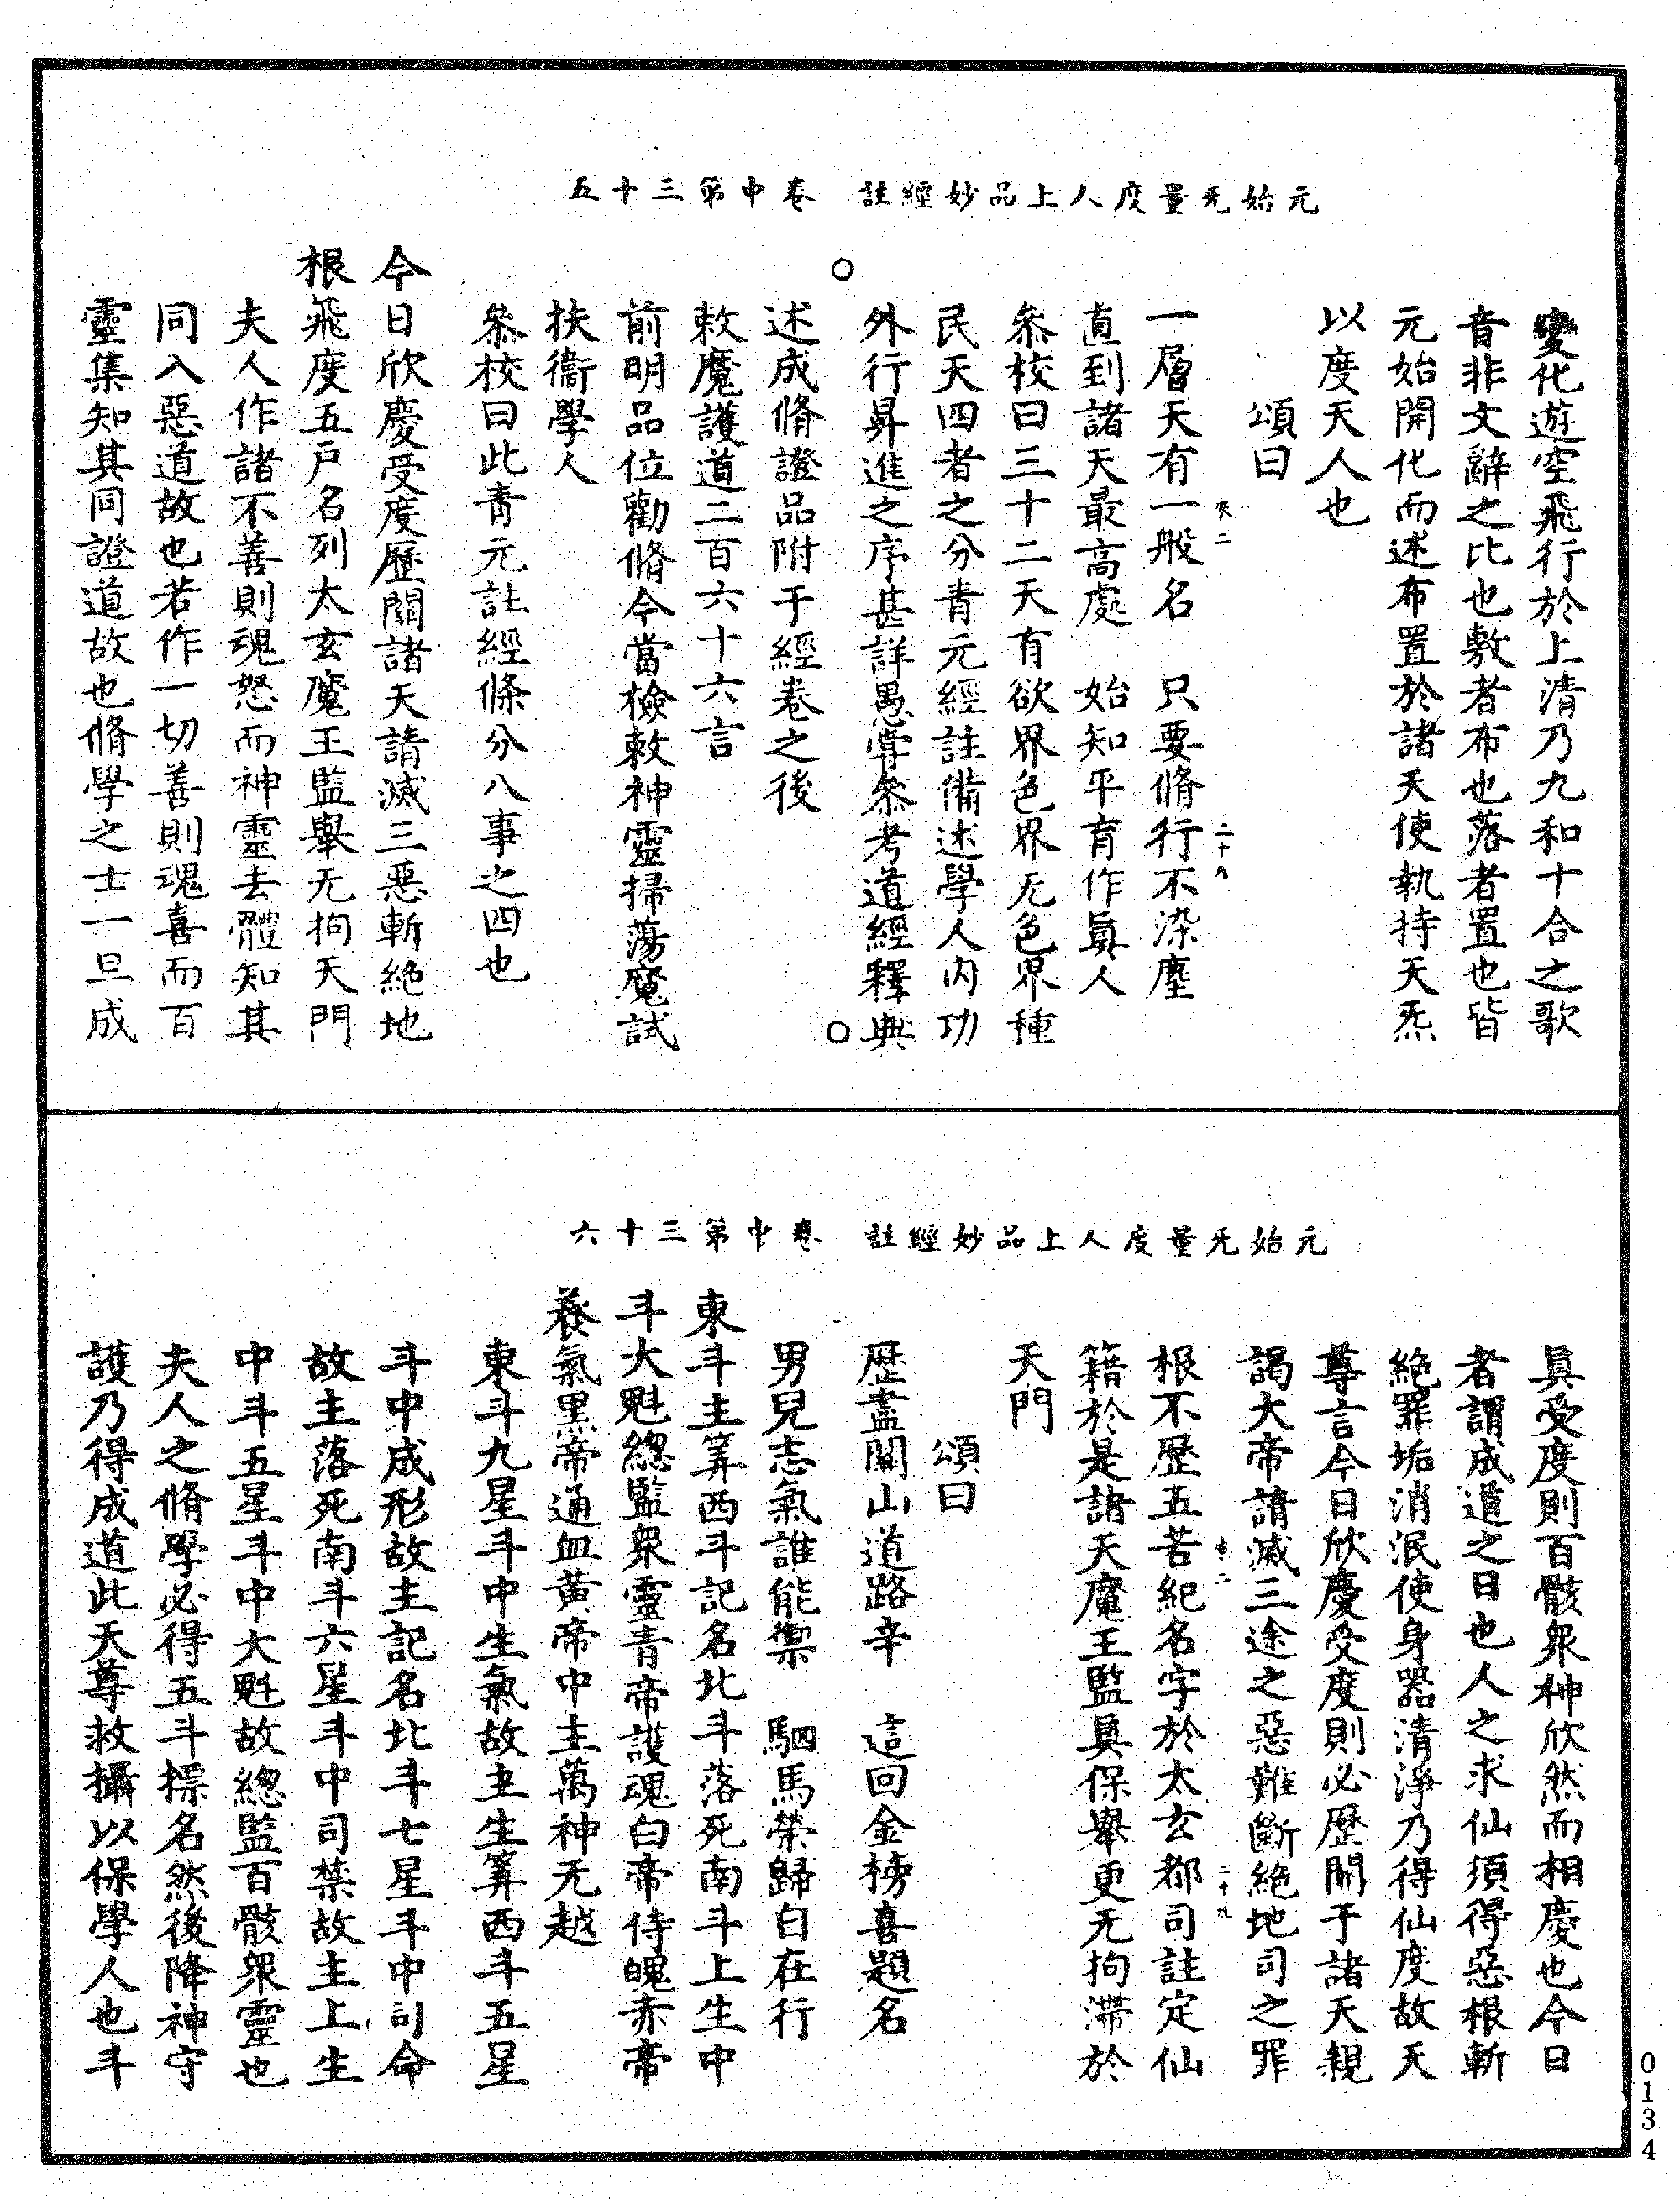 元始无量度人上品妙經註 卷中第三十五
變化遊空飛行於上清乃九和十合之歌
音非文辭之比也敷者布也落者置也皆
元始開化而述布置於諸天使執持天炁
以度天人也
頌曰
一層天有一般名 只要脩行不染塵
直到諸天最高處 始知平育作眞人
叅校曰三十二天有欲界色界无色界種
民天四者之分青元經註備述學人內功
外行昇進之序甚詳愚嘗叅考道經釋典
述成脩證品附于經卷之後
敕魔護道二百六十六言
前明品位勸脩今當檢敕神靈掃蕩魔試
扶衞學人
叅校曰此青元註經條分八事之四也
今日欣慶受度歷關諸天請滅三惡斬絕地
根飛度五戶名列太玄魔王監舉无拘天門
夫人作諸不善則魂怒而神靈去體知其
同入惡道故也若作一切善則魂喜而百
靈集知其同證道故也脩學之士一旦成
二十八
元始无量度人上品妙經註 卷中第三十六
眞受度則百骸衆神欣然而相慶也今日
者謂成道之日也人之求仙須得惡根斬
絕罪垢消泯使身器清淨乃得仙度故天
尊言今日欣慶受度則必歷關于諸天親
謁大帝請滅三途之惡難斷絕地司之罪
根不歷五苦紀名字於太玄都司註定仙
籍於是諸天魔王監眞保舉更无拘滯於
天門
頌曰
歷盡關山道路辛 這回金榜喜題名
男兒志氣誰能禦 駟馬榮歸自在行
東斗主筭西斗記名北斗落死南斗上生中
斗大魁緫監衆靈青帝護魂白帝侍魄赤帝
養氣黑帝通血黃帝中主萬神无越
東斗九星斗中生氣故主生筭西斗五星
斗中成形故主記名北斗七星斗中司命
故主落死南斗六星斗中司禁故主上生
中斗五星斗中大魁故緫監百骸衆靈也
夫人之脩學必得五斗摽名然後降神守
護乃得成道此天尊救攝以保學人也斗
二十九
0134